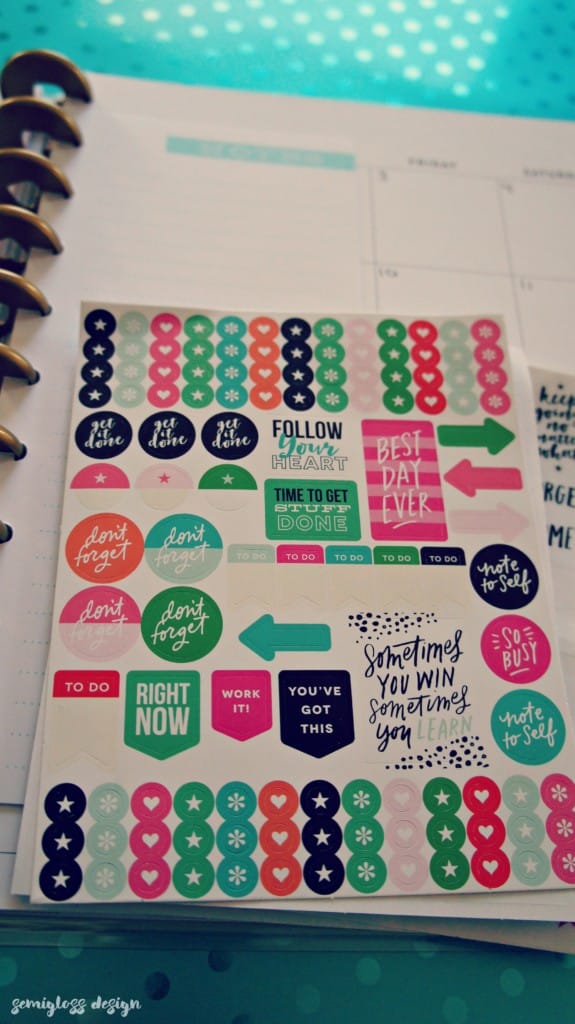 NOTES
FRIDAY
3
10
11
get it done
get it done
get it done
FOLLOW
Your
HEART
BEST
DAY
EVER
TIME TO GET
STUFF
DONE
keep
going
no
matter
what
don't
forget
don't
forget
TO DO
TO DO
TO DO
TO DO
TO DO
note
to self
don't
forget
don't
forget
SO
BUSY
Sometimes
YOU WIN
Sometimes
You LEARN
TO DO
RIGHT
NOW
WORK
IT!
YOU'VE
GOT
THIS
note
to self
semigloss design